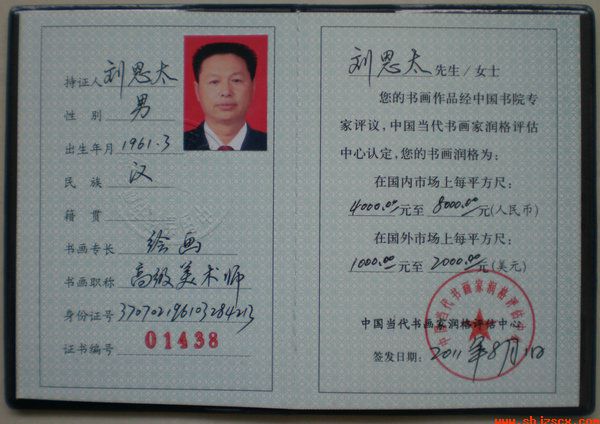 持证人 刘恩太
性 别 男
出生年月 1961.3
民 族 汉
籍 贯
书画专长 绘画
书画职称 高级美术师
身份证号 370702196103284213
证书编号 01438
刘恩太 先生/女士
您的书画作品经中国书院专
家评议，中国当代书画家润格评估
中心认定，您的书画润格为：
在国内市场上每平方尺：
4000.00元至 8000.00元(人民币)
在国外市场上每平方尺：
1000.00元至 2000.00元(美元)
中国当代书画家润格评估中心
签发日期：2011年8月1日
中国当代书画家润格评估中心
www.shjzscx.com